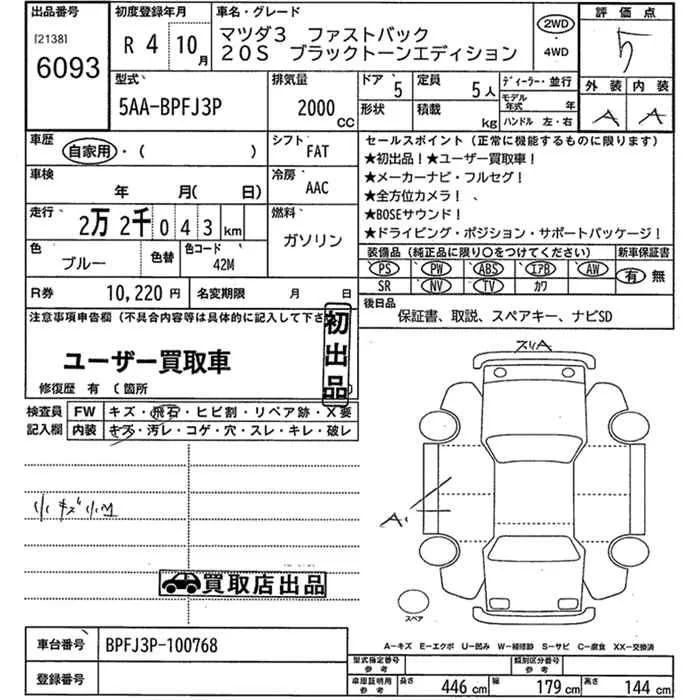 出品番号
[2138]
6093
初度登録年月
R 4 10月
車名・グレード
マツダ3 ファストバック
20S ブラックトーンエディション
2WD
・
4WD
評価点
5
外装 内装
A A
型式
5AA-BPFJ3P
排気量
2000 CC
ドア 5
形状
定員 5人
積載 kg
ディーラー・並行
モデル年式 年
ハンドル 左・右
車歴
自家用・( )
シフト
FAT
車検
年 月(日)
冷房
AAC
走行
2万2千043km
燃料
ガソリン
色
ブルー
色替
色コード
42M
R券 10,220円
名変期限 月 日
セールスポイント(正常に機能するものに限ります)
★初出品!★ユーザー買取車!
★メーカーナビ・フルセグ!
★全方位カメラ! 、
★BOSEサウンド!
★ドライビング・ポジション・サポートパッケージ!
装備品(純正品に限り○をつけてください)
PS PW ABS エアB AW
SR NV TV カワ
新車保証書
有 無
後日品
保証書、取説、スペアキー、ナビSD
注意事項申告欄(不具合内容等は具体的に記入して下さ
初出品
ユーザー買取車
修復歴 有 (箇所
検査員記入欄
FW キズ・飛石・ヒビ割・リペア跡・X要
内装 キズ・汚レ・コゲ・穴・スレ・キレ・破レ
小キズ小凹
買取店出品
スリA
A1
スペア
車台番号 BPFJ3P-100768
登録番号
A=キズ E=エクボ U=凹み W=補修跡 S=サビ C=腐食 XX=交換済
型式指定番号 参考
類別区分番号 参考
車庫証明用 参考
長さ 446 cm
幅 179 cm
高さ 144 cm